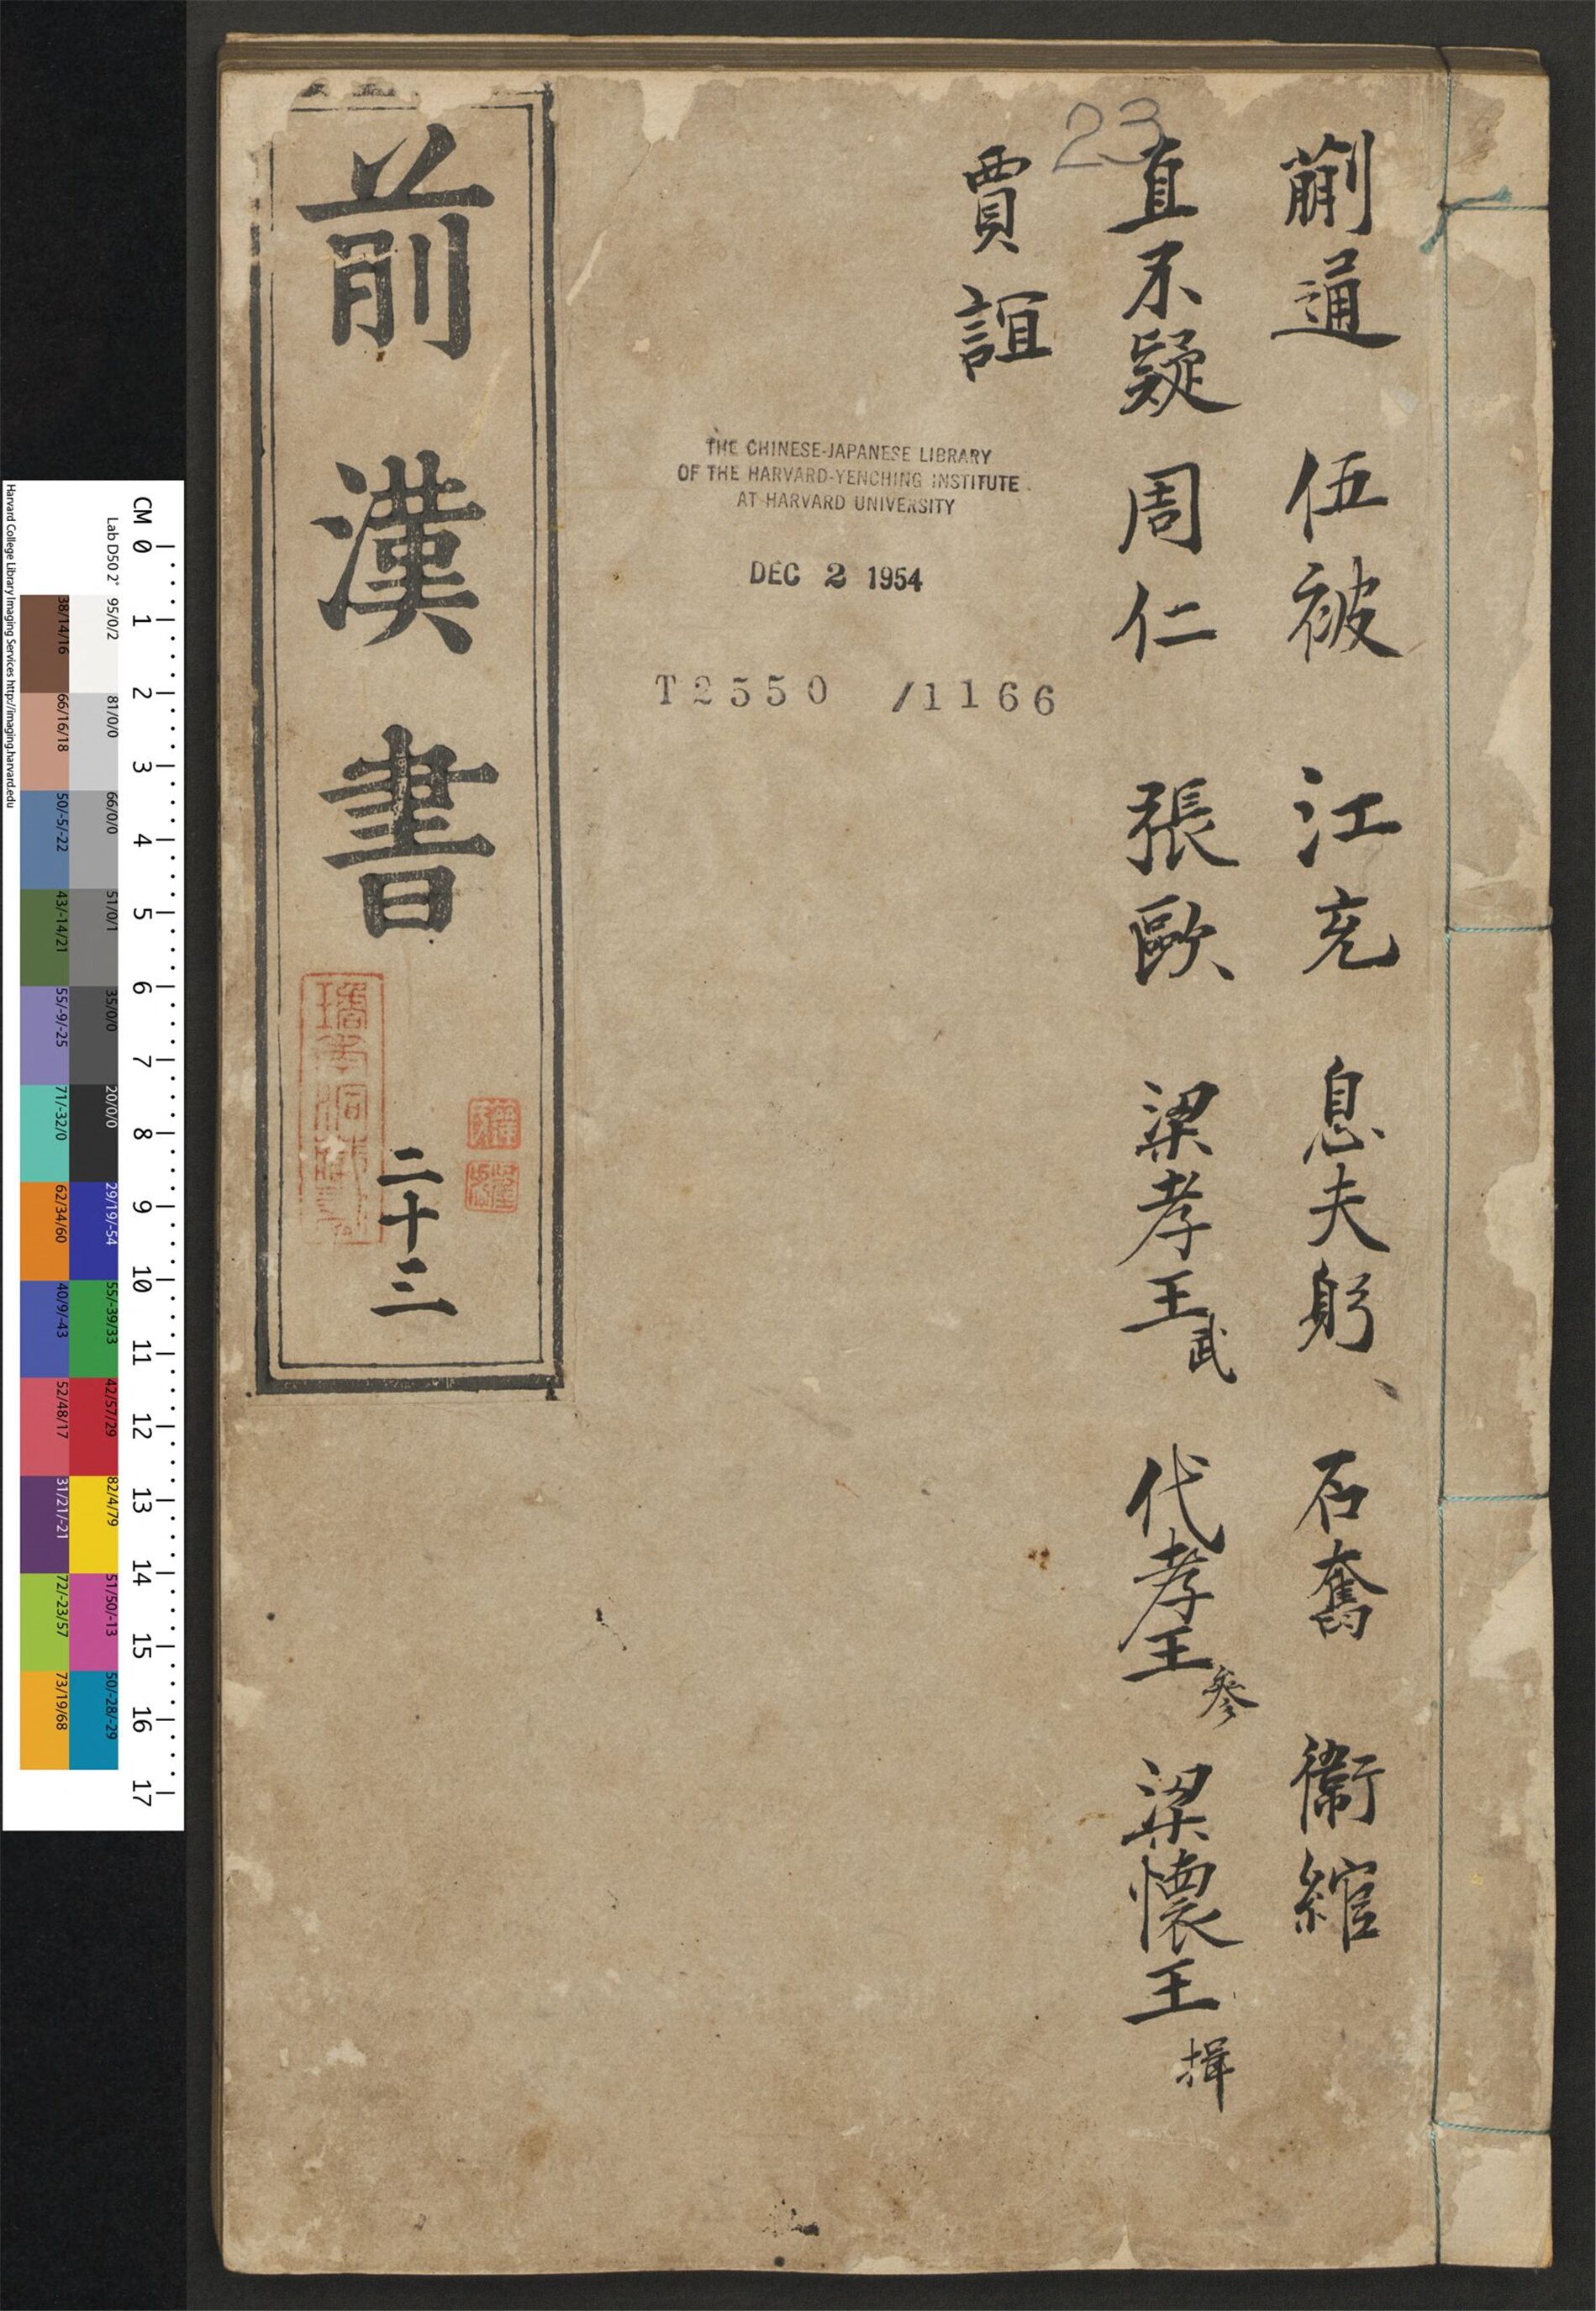 蒯通 伍被 江充 息夫躬 石奮 衞綰
直不疑 周仁 張歐 梁孝王武 代孝王參 梁懷王揖
賈誼
23
THE CHINESE-JAPANESE LIBRARY
OF THE HARVARD-YENCHING INSTITUTE
AT HARVARD UNIVERSITY
DEC 2 1954
T2550 /1166
前漢書
二十三
CM 0 1 2 3 4 5 6 7 8 9 10 11 12 13 14 15 16 17
Lab D50 2° 95/0/2 81/0/0 66/0/0 51/0/1 35/0/0 20/0/0 29/19/-54 55/-39/33 42/57/29 82/4/79 51/50/-13 50/-28/-29
38/14/16 66/16/18 50/-5/-22 43/-14/21 55/-9/-25 71/-32/0 62/34/60 40/9/-43 52/48/17 31/21/-21 72/-23/57 73/19/68
Harvard College Library Imaging Services http://imaging.harvard.edu